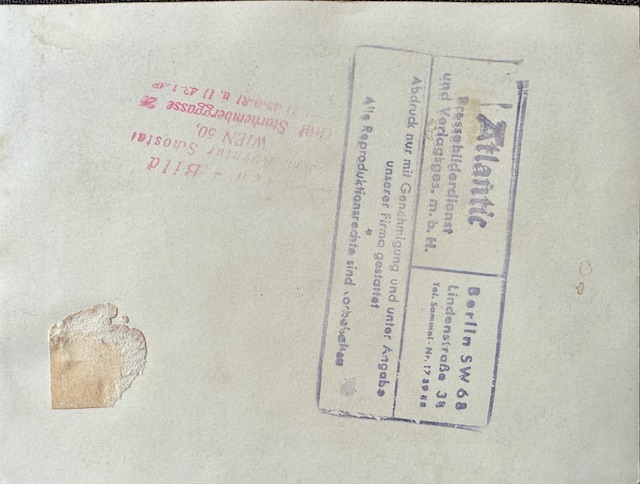 Atlantic
Pressebilderdienst
und Verlagsges. m. b. H.
Berlin SW 68
Lindenstraße 38
Tel. Sammel-Nr. 17
Abdruck nur mit Genehmigung und unter Angabe
unserer Firma gestattet
Alle Reproduktionsrechte sind vorbehalten
- Bild
Agentur Schostal
WIEN 50,
Graf Starhemberggasse
u. U 42-1-